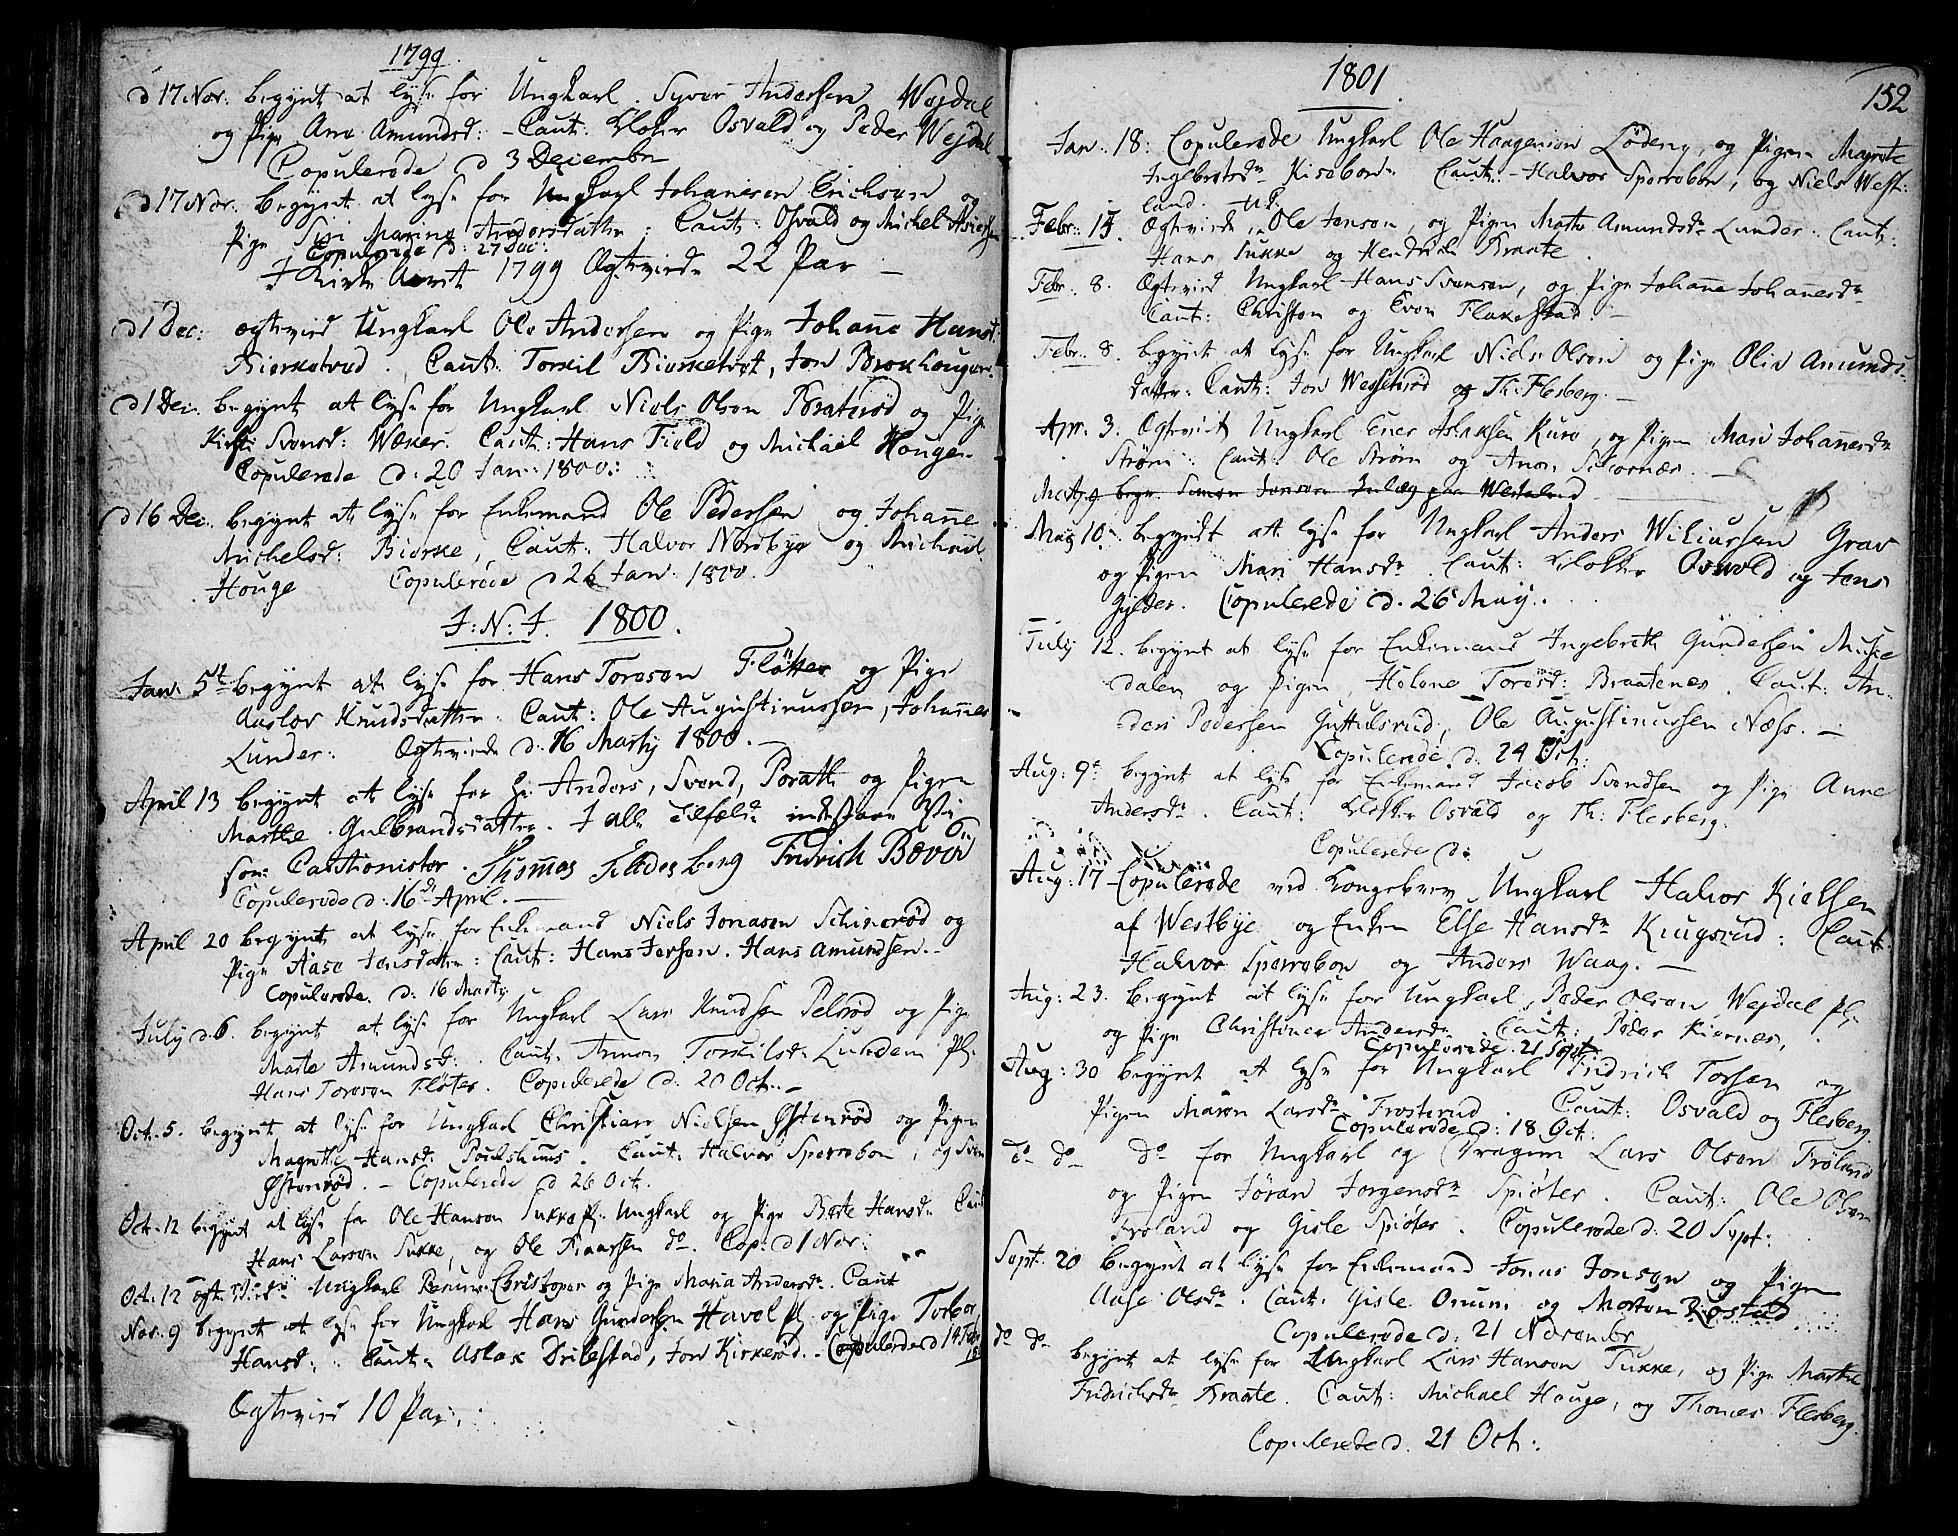 1799.
d 17 Nov: begynt at lyse for Ungkarl Syver Andersen Wejdal
og Pige Ane Amundsd: - Caut: Kloker Osvald og Peder Wejdal
Copulerede d 3 Decembr
d 17 Nov: begynt at lyse for Ungkarl Johannesen Erichsøn og
Pige Sisi Marina Andersdatter: Caut: Osvald og Michel
Copulerede d: 27 Dec:
I Kirke Aaret 1799 Ægtevied 22 Par -
d 1 Dec: ægtevied Ungkarl Ole Andersen og Pige Johanne Hansd:
Biørketved. Caut: Torkil Biørketvet, Jon Brokhougen
d 1 Dec. begynt at lyse for Ungkarl Niels Olsøn Braterød og Pige
Kirsti Svensd: Wæker. Caut: Hans Field og Michael Houge.
Copulerede d: 20 Jan: 1800.
d 16 Dec. begynt at lyse for Enkemand Ole Pedersen og Johanne
Michelsd: Biørke, Caut: Halvor Nordbye og Michael
Houge Copulerede d 26 Jan: 1800.
I: N: J. 1800.
Jan: 5t begynt at lyse for Hans Toresøn Fløtter og Pige
Aaslov Knudsdatter. Caut: Ole Augustinussen, Johannes
Lunder: Ægteviede d: 16 Martij 1800.
April 13 begynt at lyse for Hr Anders, Svend, Porath og Pigen
Marthe Gulbrandsdatter. I alle Tilfælde indestaar Vi
som Cautionister. Thomas Fladesberg Fridrich Bøver
Copulerede d: 16de April.
April 20 begynt at lyse for Enkemand Niels Jonasøn Schinerød og
Pige Aase Jensdatter: Caut: Hans Jersøn. Hans Amundsen.
Copulerede. d: 16 Martij
July d 6. begynt at lyse for Ungkarl Lars Knudsen Pelerød og Pige
Marte Amundsd: Caut: Amon Torkilsd: Lundem Pl:
Hans Toresøn Fløter. Copulerede d: 20 Oct.
Oct. 5. begynt at lyse for Ungkarl Christian Nielsen Østenrød og Pigen
Magrethe Hansd: Poulshuus. Caut: Halvor Sperrebon, og Sven
Østenrød. - Copulerede d 26 Oct.
Oct. 12 begynt at lyse for Ole Hansøn Sukke Pl: Ungkarl og Pige Berte Hansdr Caut
Hans Larsøn Sukke, og Ole Braarsen do. Cop: d 1 Nov:
Oct. 12 ægtevied Ungkarl Christopher og Pige Maria Andersdr. Caut
Nov. 9 begynt at lyse for Ungkarl Hans Gundersen Havel pl. og Pige Torbor
Hansd: Caut: Aslak Drilestad, Jon Kirkerød. - Copulerede d 14 Febr
Ægtevied 10 Par.
1801.
152
Jan. 18: Copulerede Ungkarl Ole Haagensøn Lødeng, og Pigen Magrete
Ingebretsdr Kisebon. Caut: Halvor Sperrebon, og Niels West-
land.
Febr: 15. Ægtevied Ole Jensøn, og Pigen Marthe Amundsdr Lunder: Caut:
Hans Sukke og Hendrich Braate.
Febr: 8. Ægtevied Ungkarl Hans Svensøn, og Pige Johanne Johannesdr
Caut: Christen og Even Flakestad.
Febr. 8. begynt at lyse for Ungkarl Niels Olsøn og Pige Oliv Amunds-
datter. Caut: Jon Wesselrød og Th: Flesberg.
Apr: 3. Ægtevied Ungkarl Ener Aslaksen Kure, og Pigen Mari Johannesdr
Strøm. Caut: Ole Strøm og Anon
begr. Simon Jensøn Inlæg paa Westelund
May 10. begyndt att lyse for Ungkarl Anders Wiliursen Grav
og Pigen Mari Hansdr. Caut: Klokker Oswold og Jens
Gylder. Copulerede d. 26 May.
July 12. begynt at lyse for Enkemand Ingebreth Gundersen Musie
dalen og Pigen Helene Toresd: Braatenes. Caut: An-
ders Pedersen Guttulsrud, Ole Augustinussen Næss.
Copulerede d: 24 Oct:
Aug: 9t begynt at lyse for Enkemand Jacob Svendsen og Pige Anne
Andersdr. Caut: Klokker Osvald og Th: Flesberg.
Copulerede d:
Aug: 17 Copulerede ved Kongebrev Ungkarl Halvor Kielsen
af Westbye og Enken Else Hansdr Krugsrud: Caut.
Halvor Sperrebon og Anders Waag.
Aug: 23. begynt at lyse for Ungkarl Peder Olsøn Wejdal Pl.
og Pige Christine Andersdr. Caut: Peder Kiernes,
Copulerede 21 Sept
Aug: 30 begynt at lyse for Ungkarl Fridrich Torsen og
Pigen Maren Larsdr Frosterud. Caut: Osvald og Flesberg.
Copulerede d: 18 Oct:
do do do for Ungkarl og Dragun Lars Olsøn Frøland
og Pigen Jøran Jørgensdr Spiøter. Caut: Ole Olsøn
Frøland og Gisle Spiøter. Copulerede d: 20 Sept:
Sept. 20 begynt at lyse for Enkemand Jonas Jonsøn og Pigen
Aase Olsdr. Caut: Gisle Onum og Morten Røstad
Copulerede d: 21 Novembr
do do begynt at lyse for Ungkarl Lars Hansøn Sukke, og Pige Marthe
Fridrichsdr Braate. Caut: Michael Houge, og Thomes Flesberg.
Copulerede d. 21 Oct: